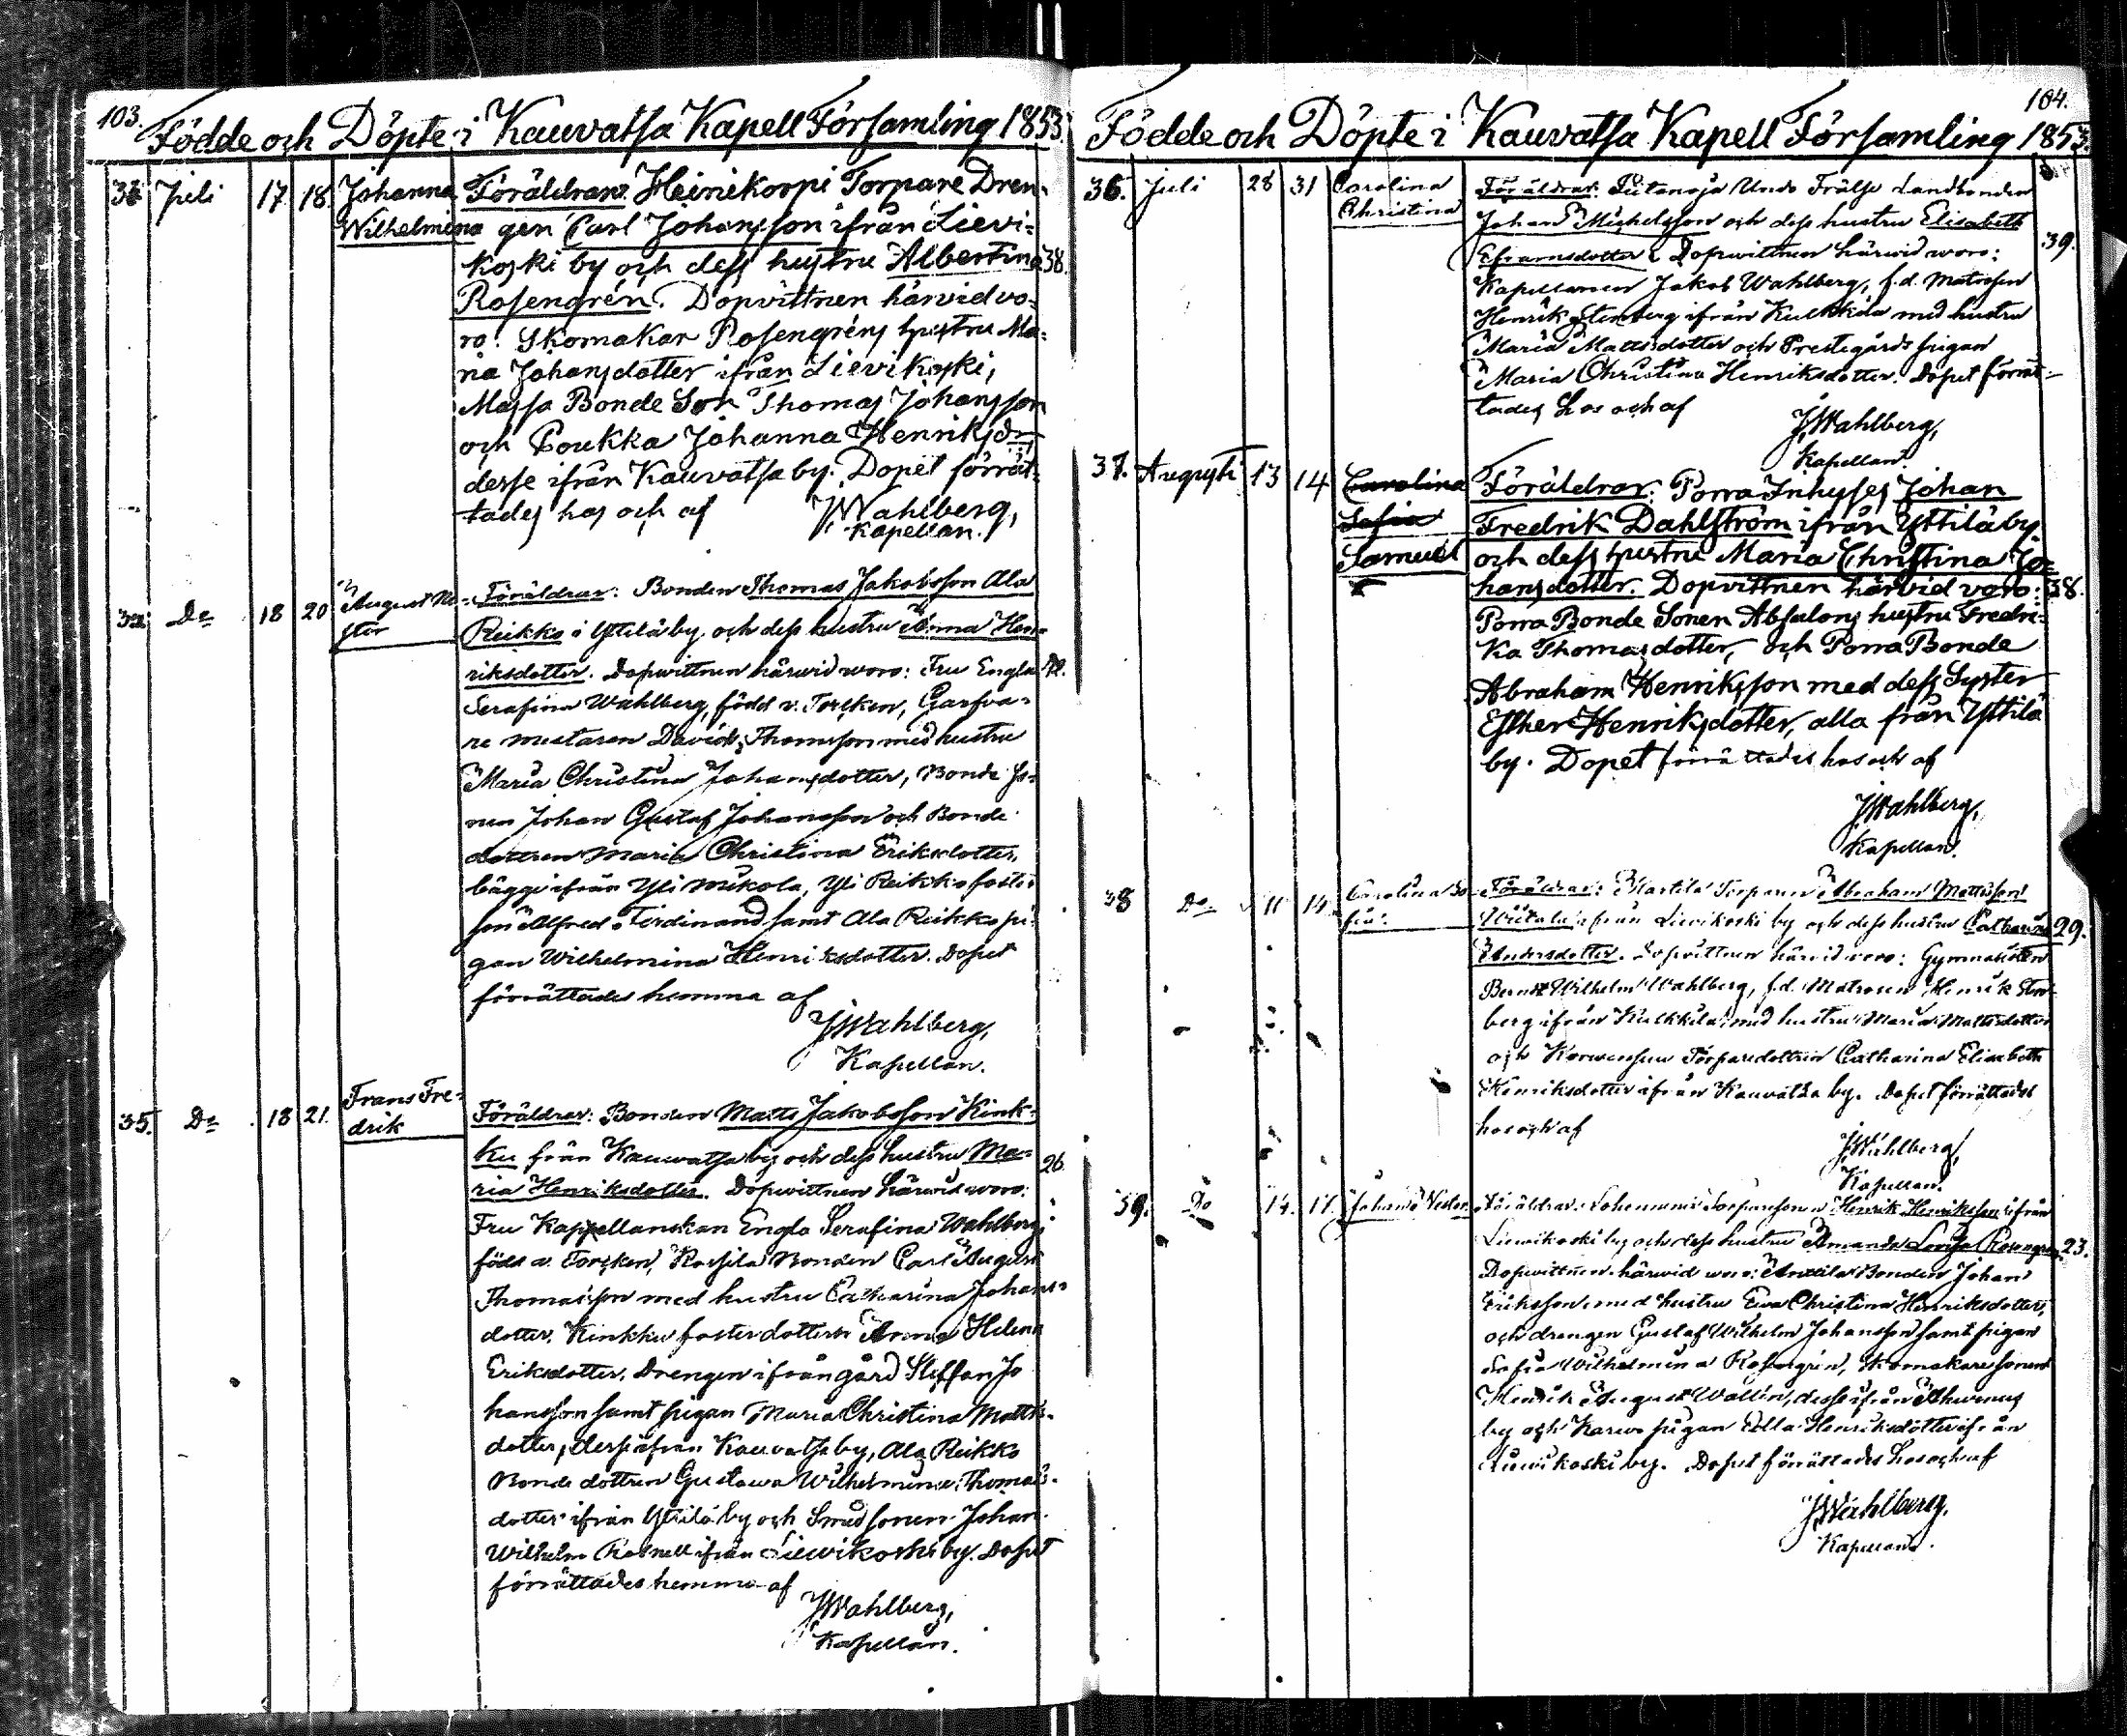 103.
Födde och Döpte i Kauvatsa Kapell Församling 1853.
33 Juli 17 18. Johanna Wilhelmina
Föräldrar: Heinikorpi Torpare Dren-
gen Carl Johansson ifrån Lievi-
koski by och dess hustru Albertina 38.
Rosengrén. Dopvittnen härvid vo-
ro: Skomakar Rosengréns hustru Ma-
ria Johansdotter ifrån Lievikoski,
Massa Bonde Son Thomas Johansson
och Poukka Johanna Henriksdr
desse ifrån Kauvatsa by. Dopet förrät-
tades hos och af JWahlberg,
Kapellan.
Do 18 20 August Ne-
stor
Föräldrar: Bonden Thomas Jakobsson Ala
Reikko i Yttilä by och dess hustru Anna Hen-
riksdotter. Dopwittnen härwid woro: Fru Engla
Serafina Wahlberg, född v. Torcken, Garfva-
re mestaren David Thomsson med hustru
Maria Christina Johansdotter, Bonde So-
nen Johan Gustaf Johansson och Bonde
dottren Maria Christina Eriksdotter,
bägge ifrån Yli Mikola, Yli Reikko foster
son Alfred Ferdinand samt Ala Reikko pi-
gan Wilhelmina Henriksdotter. Dopet
förrättades hemma af
JWahlberg,
Kapellan.
35. Do 18 21. Frans Fre-
drik
Föräldrar: Bonden Matts Jakobsson Kink-
ku från Kauwatsa by och dess hustru Ma- 26
ria Henriksdotter. Dopwittnen härwid woro:
Fru Kappellanskan Engla Serafina Wahlberg,
född v. Torcken, Bonden Carl August
Thomasson med hustru Catharina Johans-
dotter, Kinkku fosterdottern Anna Helena
Eriksdotter, Drengen ifrån gård Steffan Jo
hansson samt pigan Maria Christina Matts-
dotter, desse ifrån Kauvatsa by, Ala Reikko
Bonde dottren Gustawa Wilhelmina Thomas-
dotter ifrån Yttilä by och Smed sonen Johan
Wilhelm ifrån Liewikoski by. Dopet
förrättades hemma af
JWahlberg,
Kapellan.
104.
Födde och Döpte i Kauvatsa Kapell Församling 1853.
36. Juli 28 31 Carolina
Christina
Föräldrar: Undo Frälse Landbonden
Johan Michelsson och dess hustru Elisabeth
Eframsdotter. Dopwittnen härwid woro: 39.
Kapellanen Jakob Wahlberg, f.d. Matrosen
Henrik Stenberg ifrån Kulkkila med hustru
Maria Mattsdotter och Prestegårds pigan
Maria Christina Henriksdotter. Dopet förrät-
tades hos och af
JWahlberg,
Kapellan.
37. Augusti 13 14 Carolina
Sofia
Samuel
Föräldrar: Porra Inhyses Johan
Fredrik Dahlström ifrån Yttilä by
och dess hustru Maria Christina Jo-
hansdotter. Dopvittnen härvid voro: 38.
Porra Bonde Sonen Absalons hustru Fredri-
ka Thomasdotter, och Porra Bonde
Abraham Henriksson med dess Syster
Esther Henriksdotter, alla från Yttilä
by. Dopet förrättades hos och af
JWahlberg,
Kapellan.
38 Do 11 14. Carolina So-
fia.
Föräldrar: Martila Torparen Abraham Mattsson
ifrån Liewikoski by och dess hustru Catharina 29.
Andersdotter. Dopvittnen härvid woro: Gymnasisten
Bernt Wilhelm Wahlberg, f.d. Matrosen Henrik Sten-
berg ifrån Kulkkila med hustru Maria Mattsdotter
och Torparedottren Catharina Elisabeth
Henriksdotter ifrån Kauvatsa by. Dopet förrättades
hos och af
JWahlberg,
Kapellan.
39. Do 14. 17. Johan Nestor
Föräldrar: Henrik Henriksson ifrån
Liewikoski by och dess hustru Amanda Lovisa Rosengren 23.
Dopwittnen härwid woro: Anttila Bonden Johan
Eriksson med hustru Ewa Christina Henriksdotter,
och drengen Gustaf Wilhelm Johansson samt pigan
Sofia Wilhelmina Rosengrén, Skomakare sonen
Henrik August Wallin, desse ifrån
by och pigan Ulla Henriksdotter ifrån
Liewikoski by. Dopet förrättades hos och af
JWahlberg,
Kapellan.